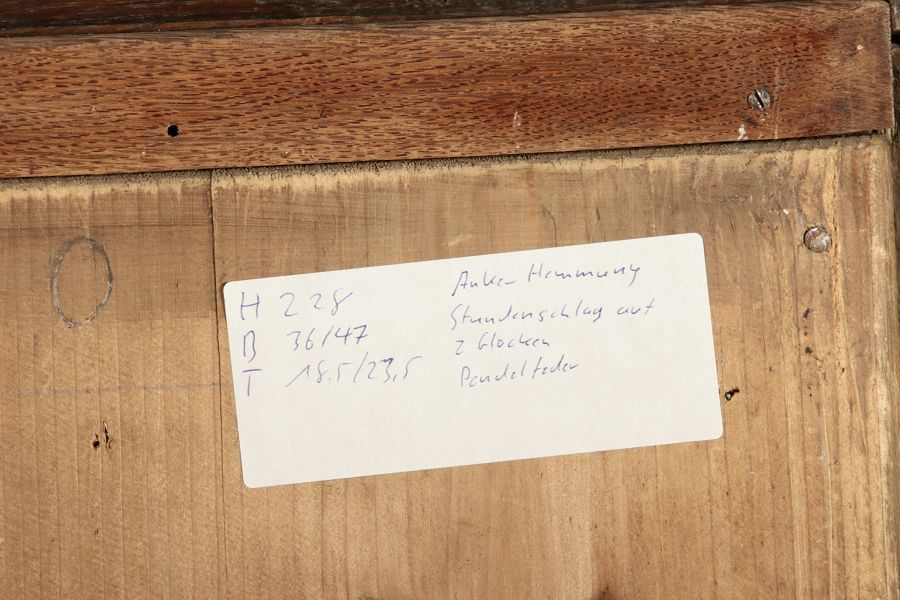 H 228
B 36/47
T 18.5/23,5
Anker Hemmung
Stundenschlag auf
2 Glocken
Pendelfeder